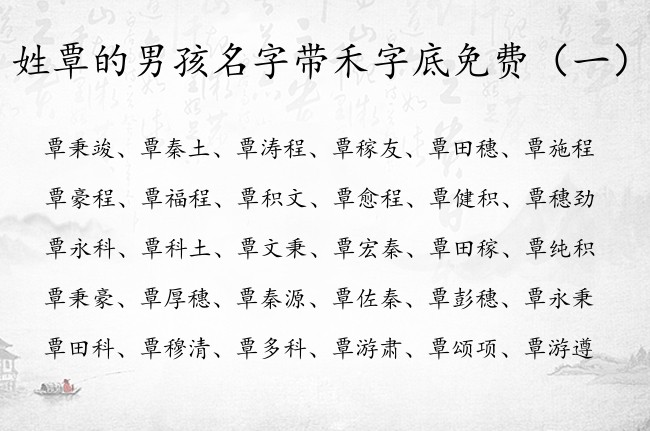 姓覃的男孩名字带禾字底免费（一）
覃秉竣、覃秦土、覃涛程、覃稼友、覃田穗、覃施程
覃豪程、覃福程、覃积文、覃愈程、覃健积、覃穗劲
覃永科、覃科土、覃文秉、覃宏秦、覃田稼、覃纯积
覃秉豪、覃厚穗、覃秦源、覃佐秦、覃彭穗、覃永秉
覃田科、覃穆清、覃多科、覃游肃、覃颂项、覃游遵